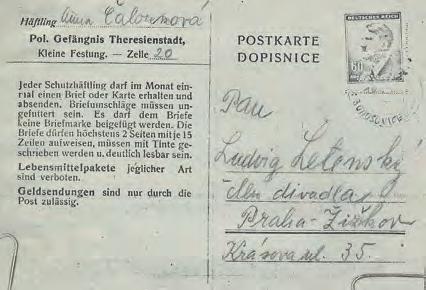 Häftling Anna Čalounková
Pol. Gefängnis Theresienstadt,
Kleine Festung. — Zelle 20
Jeder Schutzhäftling darf im Monat ein-
mal einen Brief oder Karte erhalten und
absenden. Briefumschläge müssen un-
gefuttert sein. Es darf dem Briefe
keine Briefmarke beigefügt werden. Die
Briefe dürfen höchstens 2 Seiten mit je 15
Zeilen aufweisen, müssen mit Tinte ge-
schrieben werden u. deutlich lesbar sein.
Lebensmittelpakete jeglicher Art
sind verboten.
Geldsendungen sind nur durch die
Post zulässig.
POSTKARTE
DOPISNICE
DEUTSCHES REICH
60
Pan
Ludvig Letenský
člen divadla
Praha-Žižkov
Krásova ul. 35.